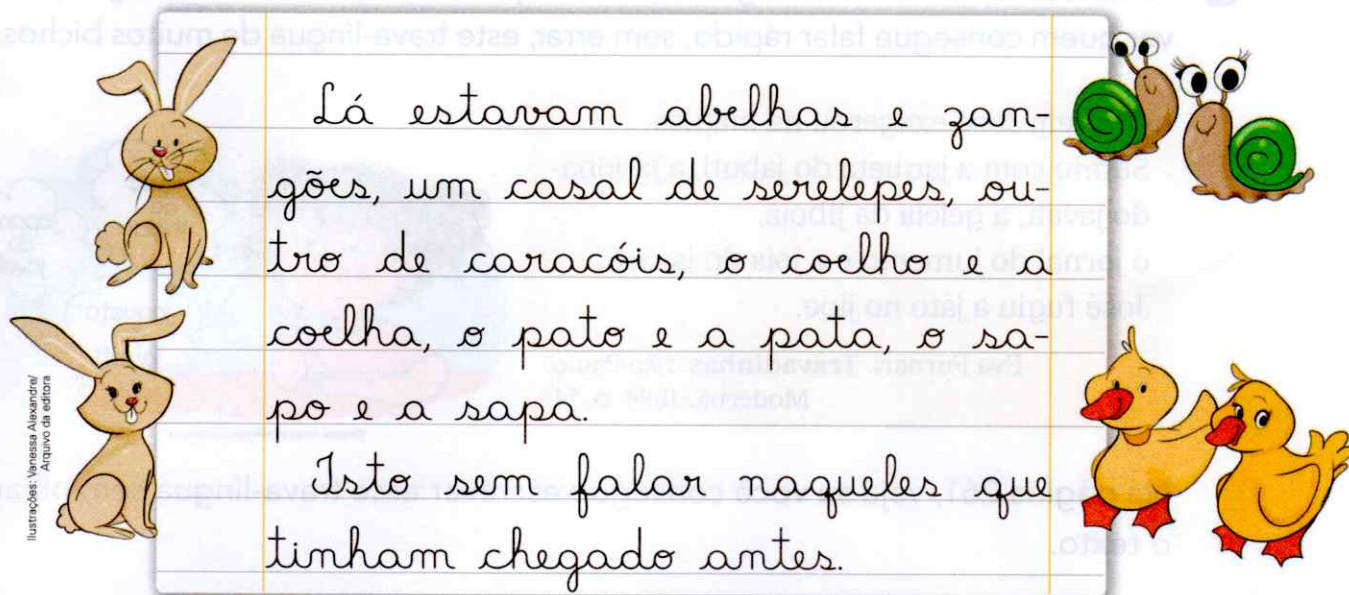 Lá estavam abelhas e zan-
gões, um casal de serelepes, ou-
tro de caracóis, o coelho e a
coelha, o pato e a pata, o sa-
po e a sapa.
Isto sem falar naqueles que
tinham chegado antes.
Ilustrações: Vanessa Alexandre/
Arquivo da editora